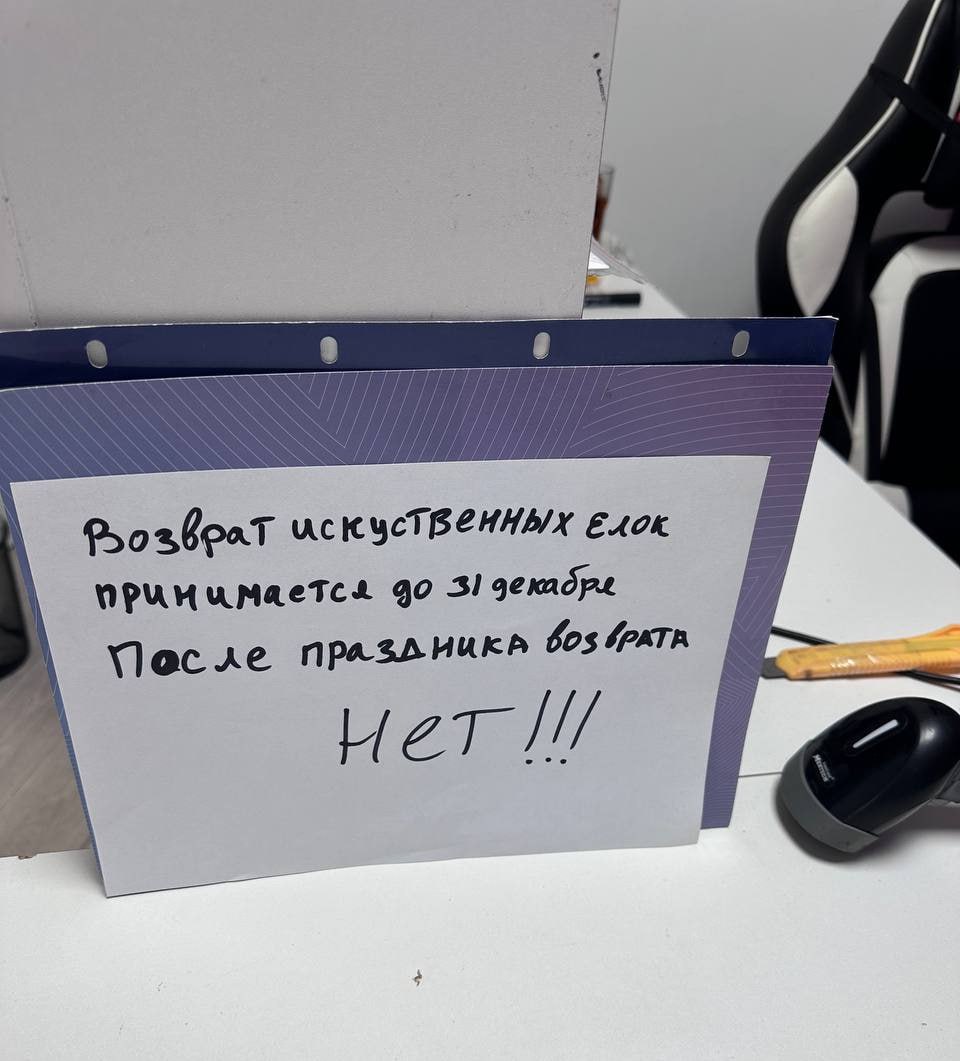 Возврат искуственных елок
принимается до 31 декабря
После праздника возврата
Нет!!!